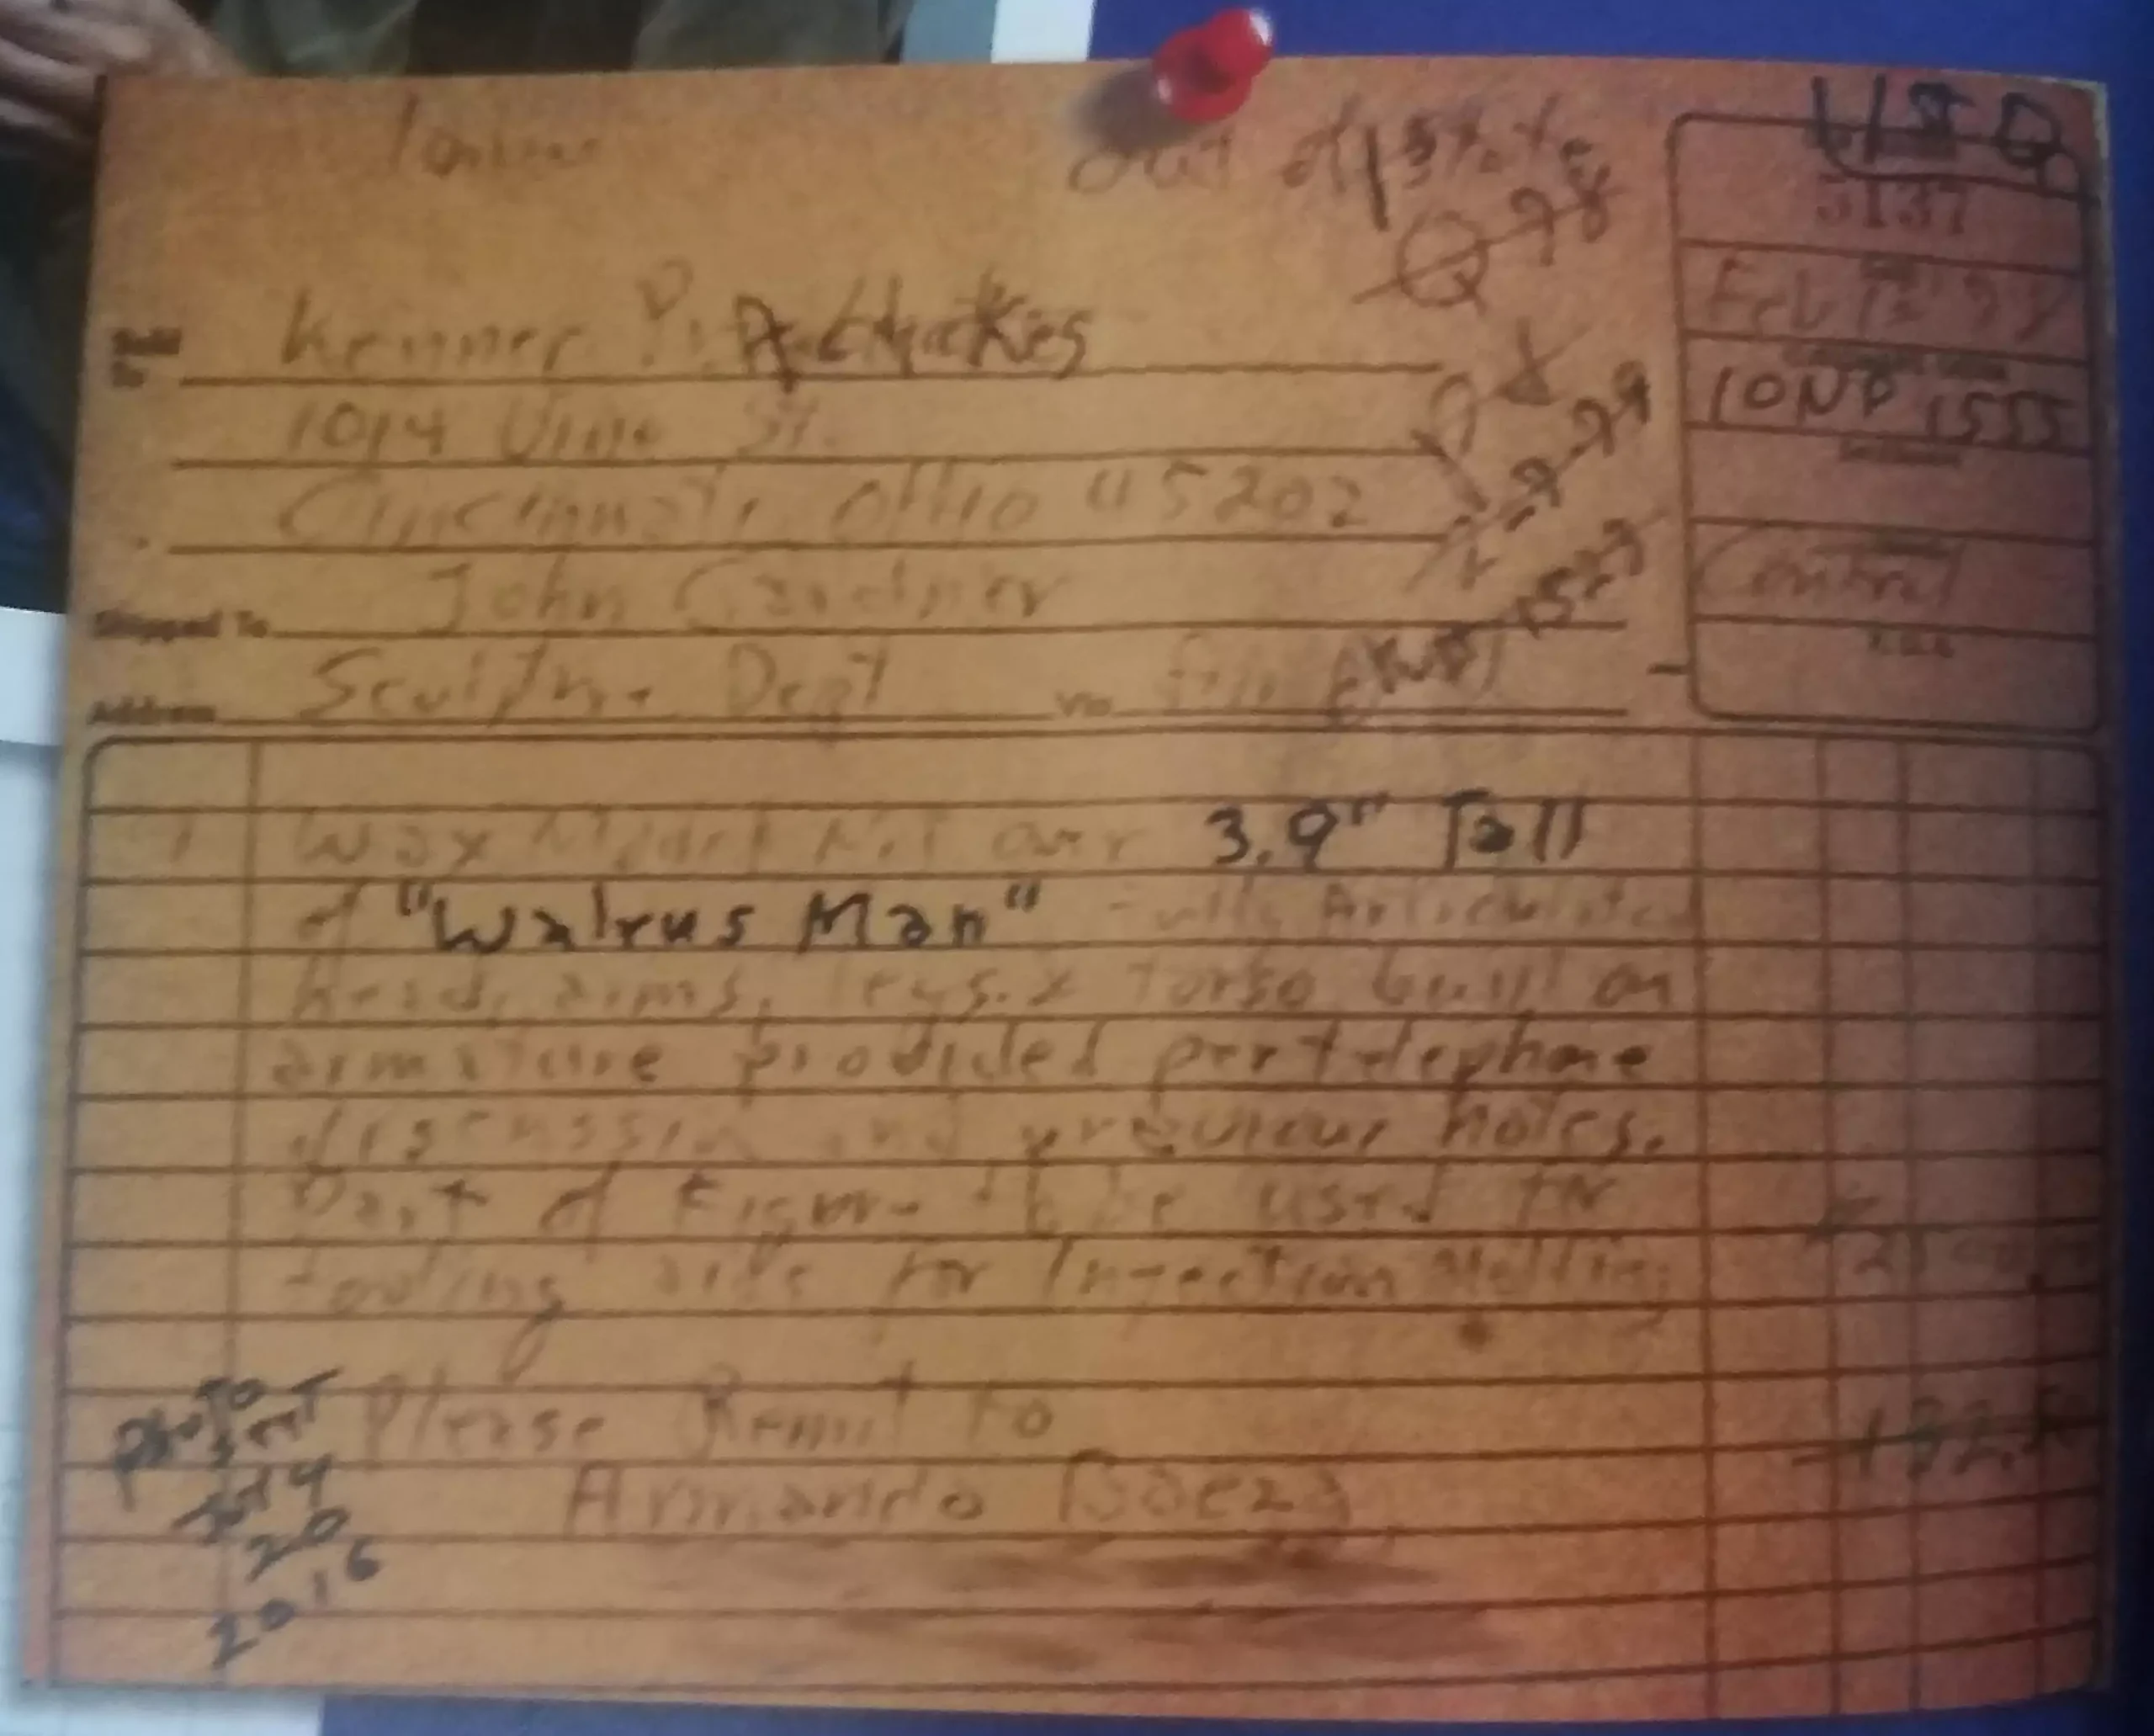 out of state
5137
Feb 78
Kenner
10NP 1555
1014 Vine St.
Cincinnati, Ohio 45202
Control
John Gardner
Shipped To
Sculpture Dept
Address
Via
1 Wax Model Not over 3.9" Tall
of "Walrus Man" Fully Articulated
head, arms, legs. & Torso built on
armature provided per telephone
discussion and previous notes.
Part of Figure to be used for
tooling aids for Injection Molding
Please Remit to
Armando Baeza
Photo
sent
July
20
2016